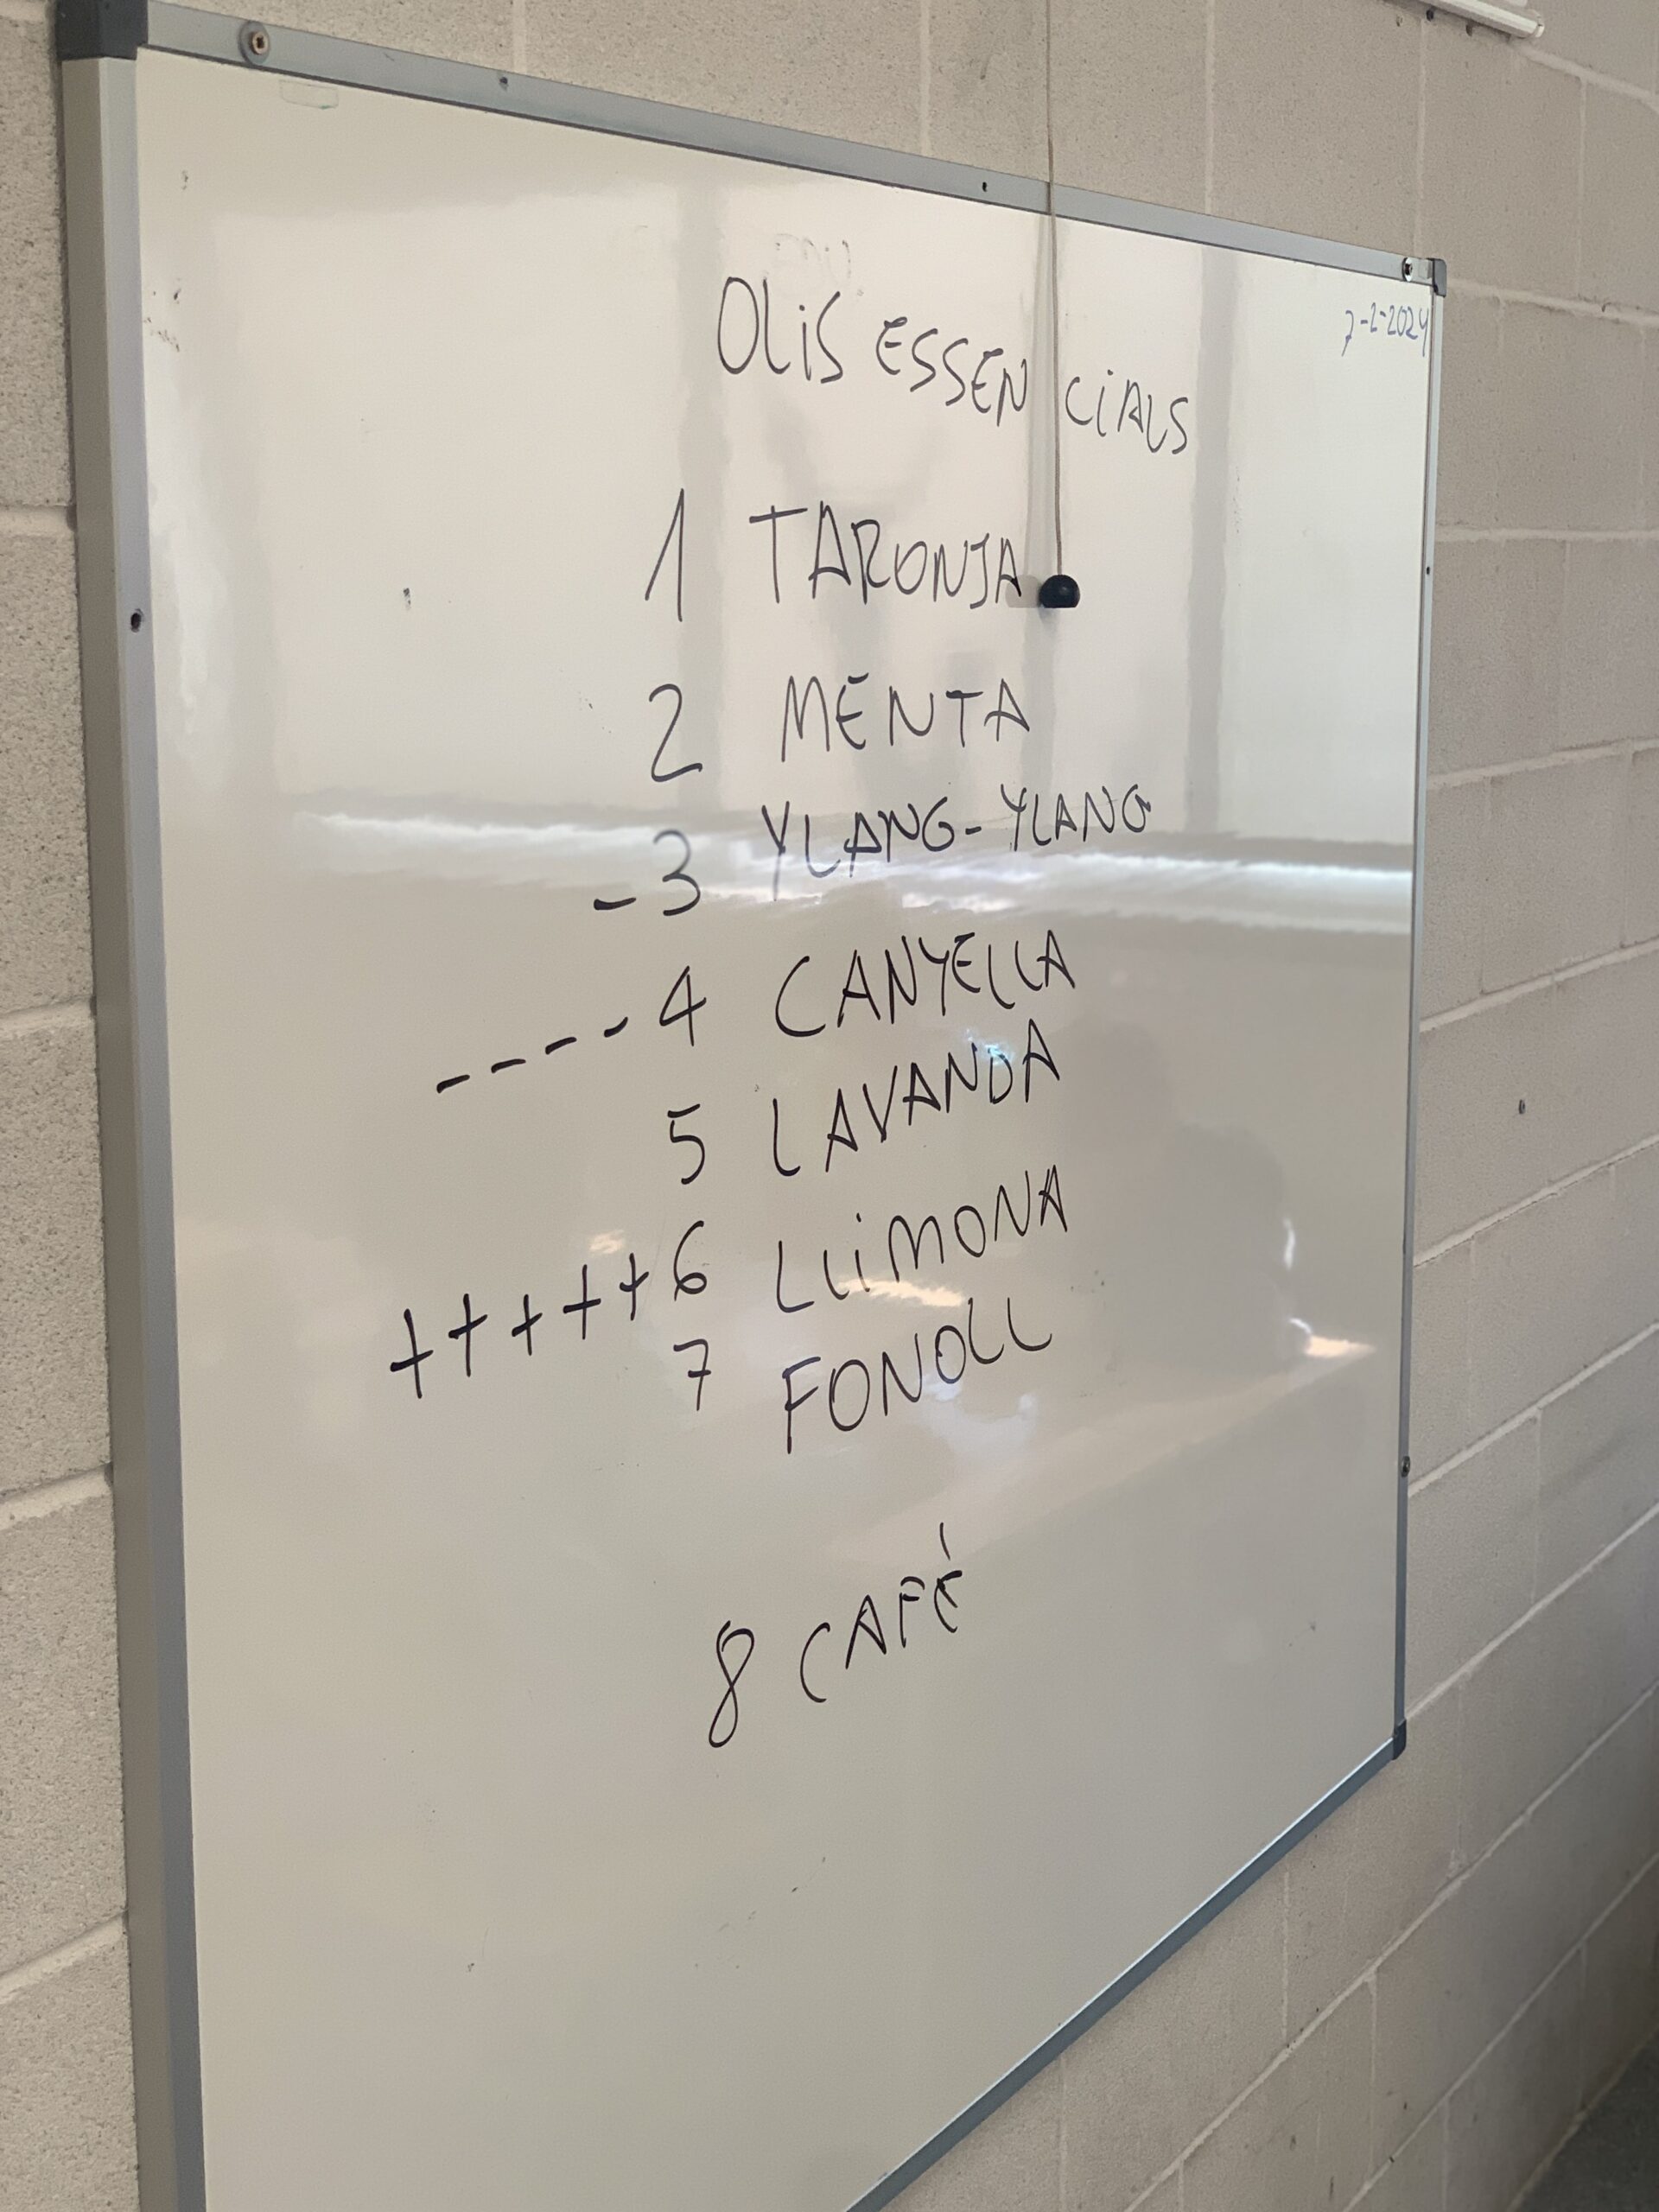 7-2-2024
OLiS ESSENCiALS
1 TARONJA
2 MENTA
- 3 YLANG-YLANG
- - - - 4 CANYELLA
5 LAVANDA
+ + + + + 6 LLiMONA
7 FONOLL
8 CAFÉ